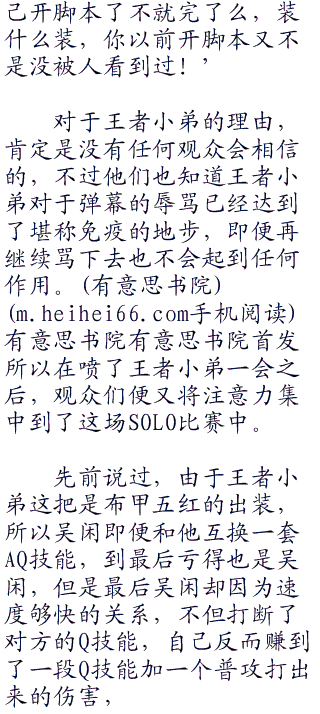 己开脚本了不就完了么，装
什么装，你以前开脚本又不
是没被人看到过！’
对于王者小弟的理由，
肯定是没有任何观众会相信
的，不过他们也知道王者小
弟对于弹幕的辱骂已经达到
了堪称免疫的地步，即便再
继续骂下去也不会起到任何
作用。(有意思书院)
(m.heihei66.com手机阅读)
有意思书院有意思书院首发
所以在喷了王者小弟一会之
后，观众们便又将注意力集
中到了这场SOLO比赛中。
先前说过，由于王者小
弟这把是布甲五红的出装，
所以吴闲即便和他互换一套
AQ技能，到最后亏得也是吴
闲，但是最后吴闲却因为速
度够快的关系，不但打断了
对方的Q技能，自己反而赚到
了一段Q技能加一个普攻打出
来的伤害，